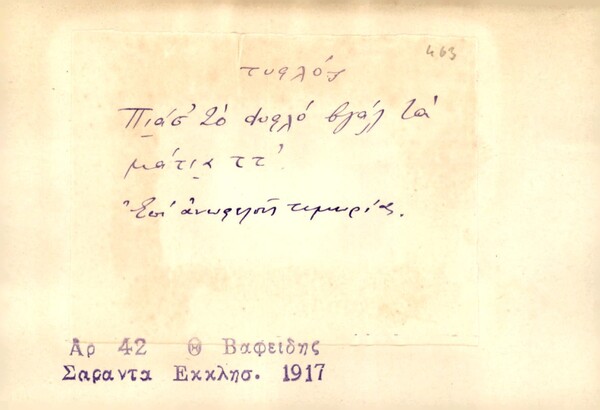 463
τυφλός
Πιάσ' τὸ στυφλό βγάλ' τὰ
μάτια ττ'.
Ἐπὶ ἀνωφελοῦς τιμωρίας.
Αρ 42 Θ Βαφειδης
Σαραντα Εκκλησ. 1917